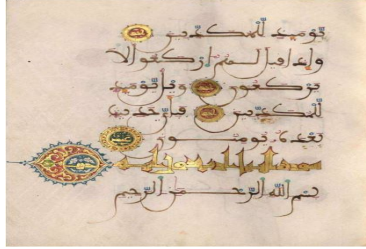 يومئذ للمكذبين
وإذا قيل لهم اركعوا لا
يركعون ويل يومئذ
للمكذبين فبأي حديث
بعده يؤمنون
بسم الله الرحمن الرحيم